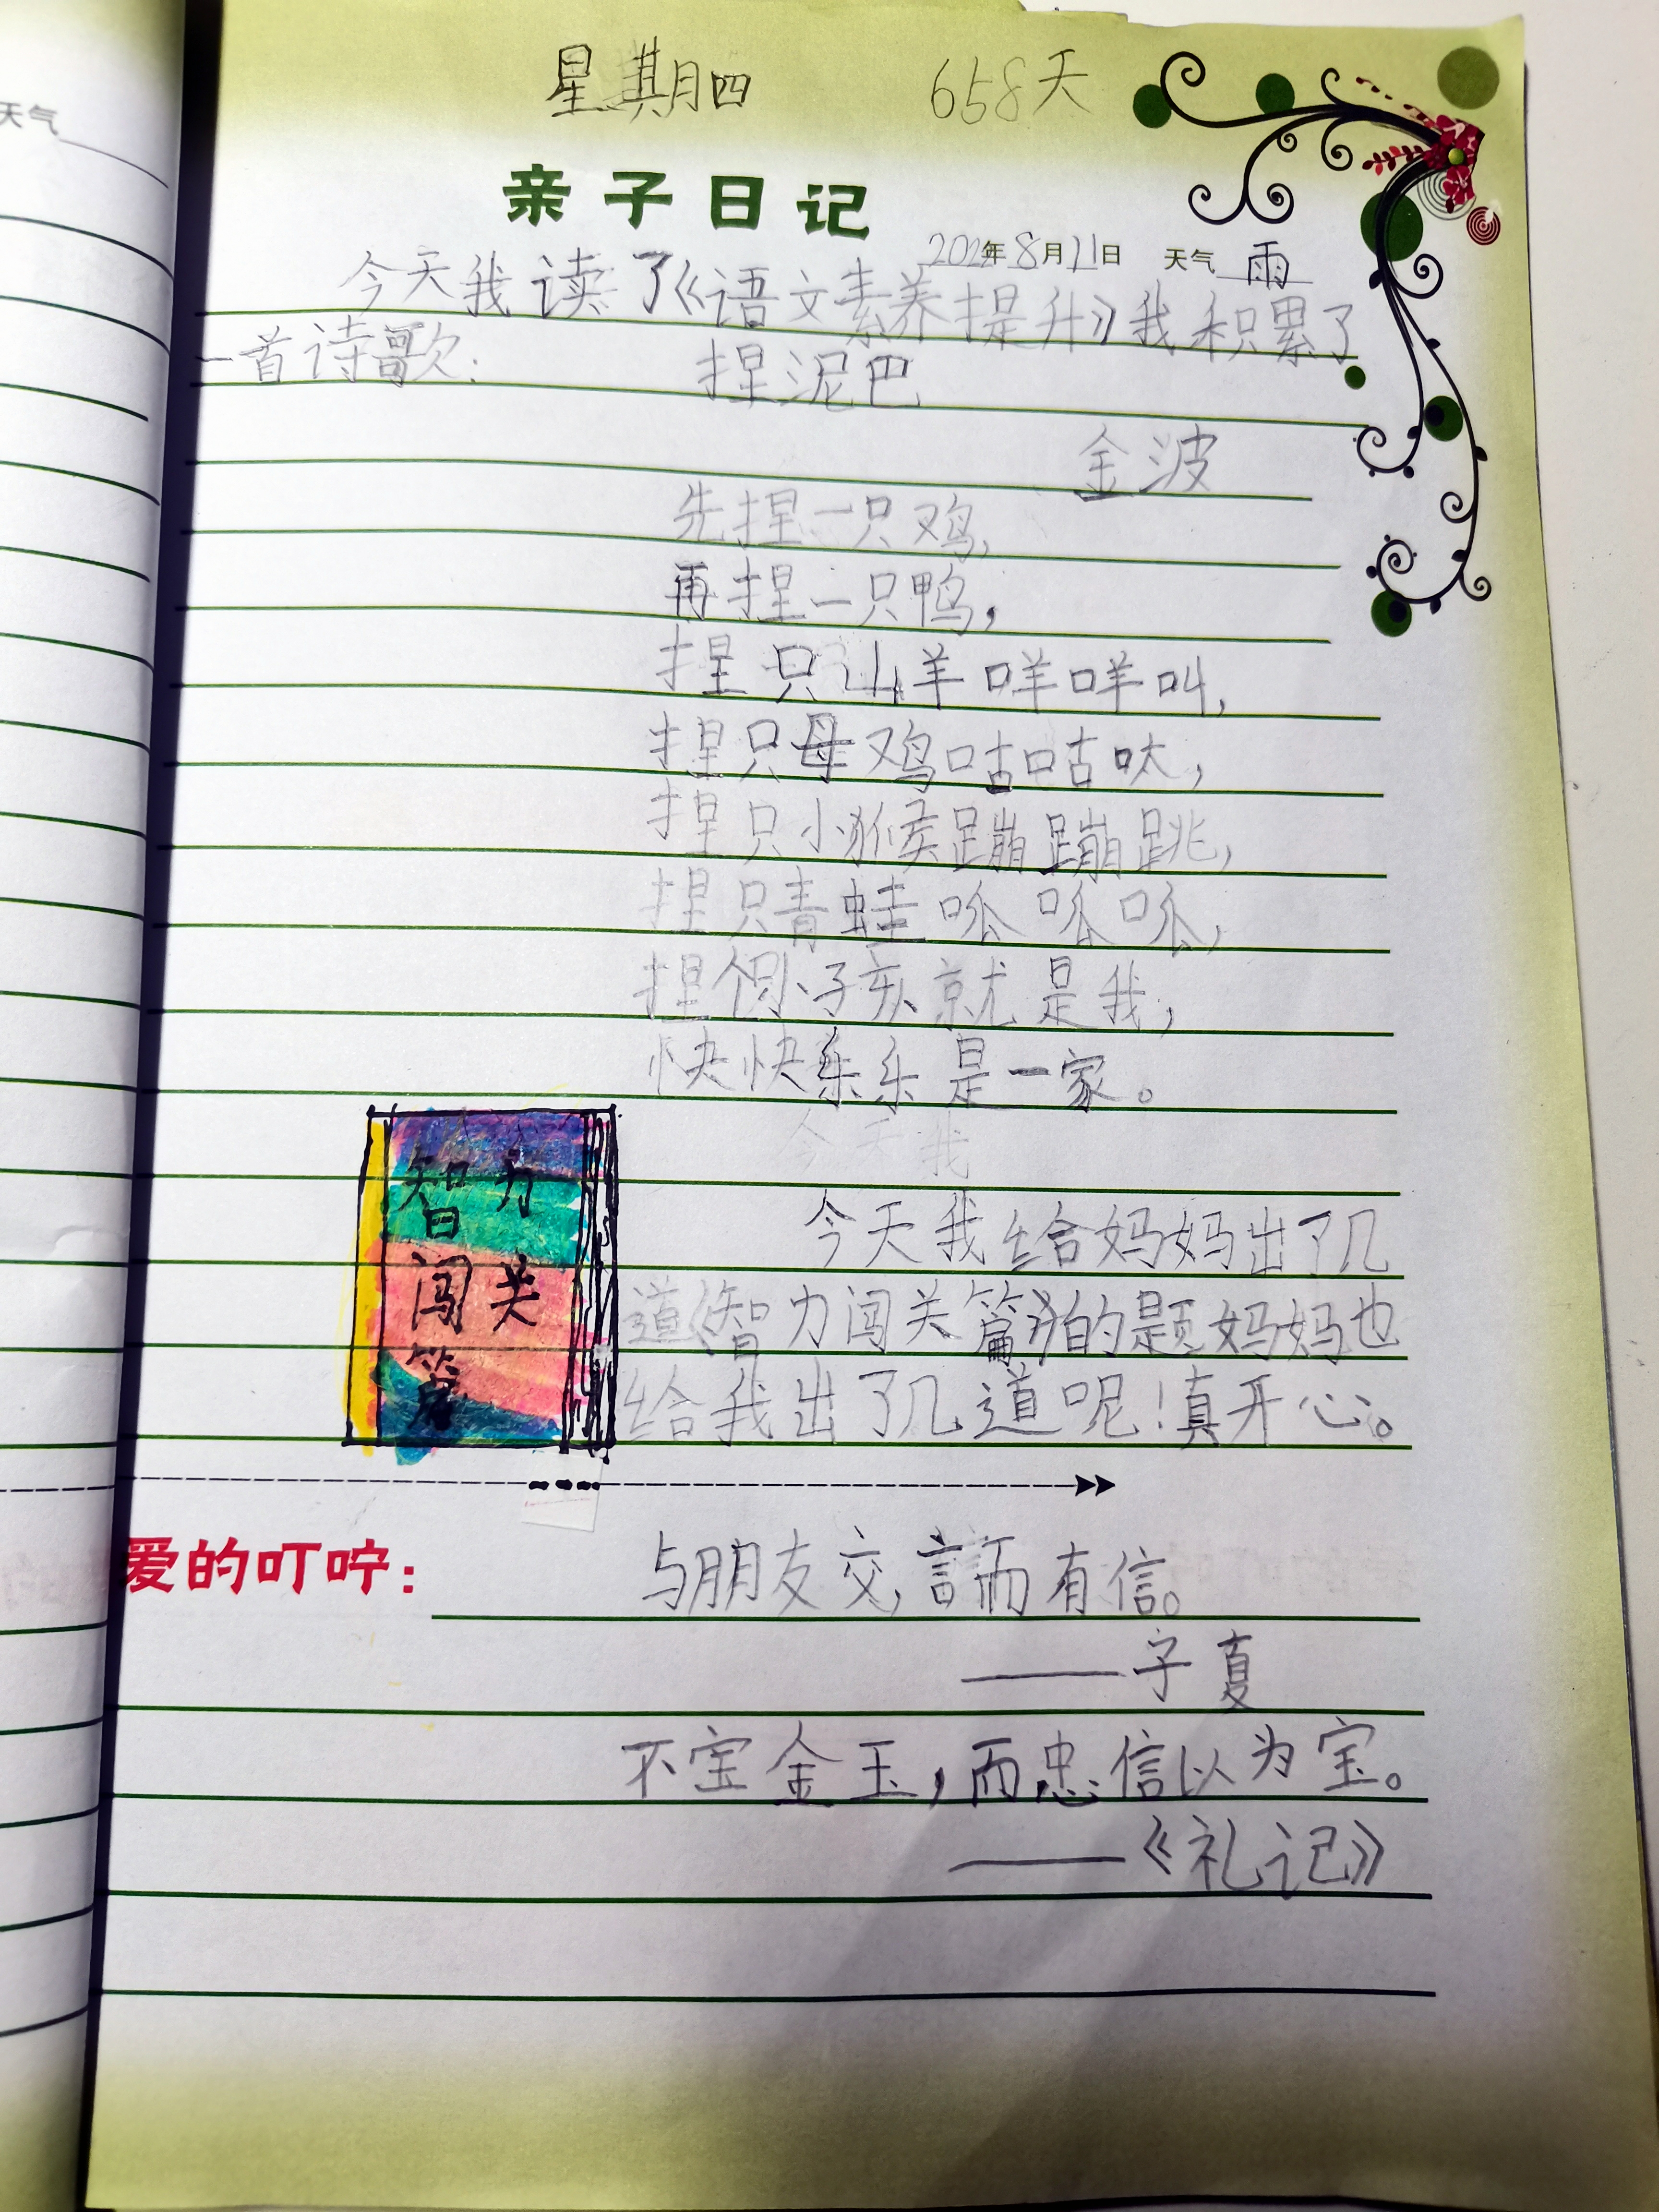 天气
星期四 658天
亲子日记
2022年8月11日 天气 雨
今天我读了《语文素养提升》我积累了
一首诗歌:
捏泥巴
金波
先捏一只鸡,
再捏一只鸭,
捏只山羊咩咩叫,
捏只母鸡咕咕哒,
捏只小猴蹦蹦跳,
捏只青蛙呱呱呱,
捏个小孩就是我,
快快乐乐是一家。
今天我
今天我给妈妈出了几
道《智力闯关篇》的题妈妈也
给我出了几道呢!真开心。
智力
闯关
篇
爱的叮咛:
与朋友交,言而有信。
——子夏
不宝金玉,而忠信以为宝。
——《礼记》